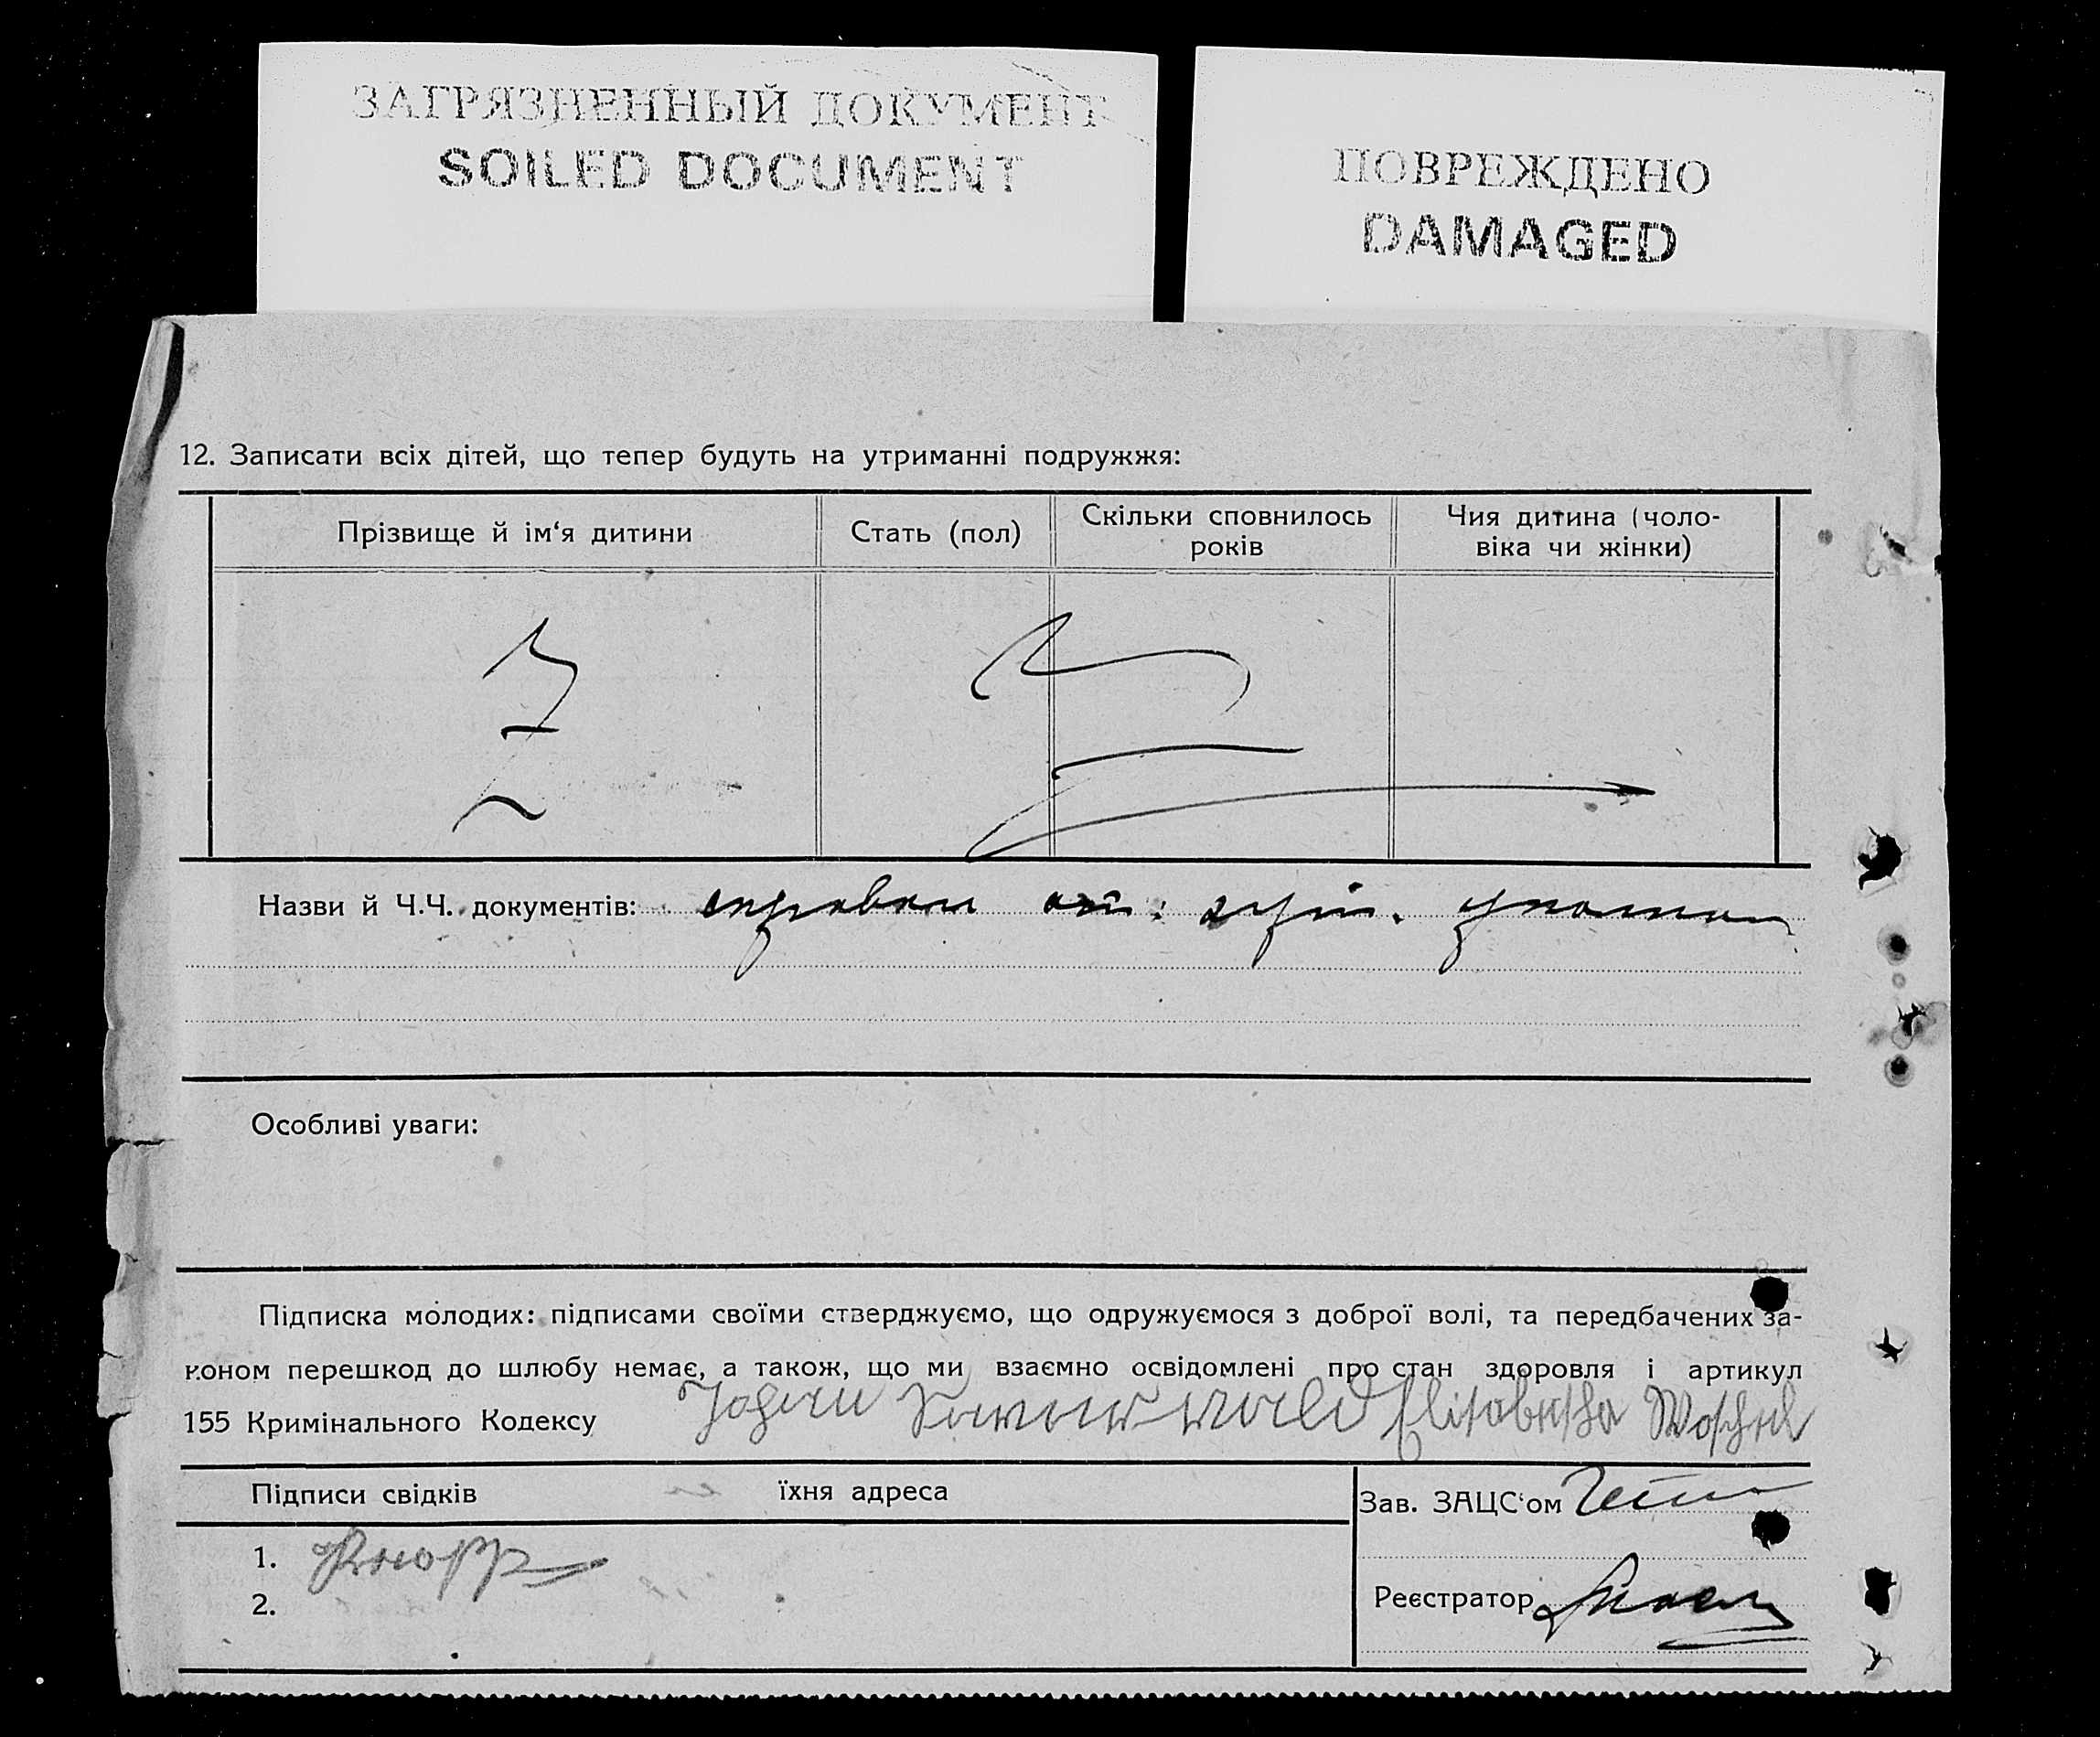 ЗАГРЯЗНЕННЫЙ ДОКУМЕНТ
SOILED DOCUMENT
ПОВРЕЖДЕНО
DAMAGED
12. Записати всіх дітей, що тепер будуть на утриманні подружжя:
Прізвище й ім‘я дитини
Стать (пол)
Скільки сповнилось
років
Чия дитина (чоло-
віка чи жінки)
Назви й Ч.Ч. документів:
Особливі уваги:
Підписка молодих: підписами своїми стверджуємо, що одружуємося з доброї волі, та передбачених за-
коном перешкод до шлюбу немає, а також, що ми взаємно освідомлені про стан здоровля і артикул
155 Кримінального Кодексу
Підписи свідків їхня адреса
Зав. ЗАЦС‘ом
1. Knopp
2.
Реєстратор